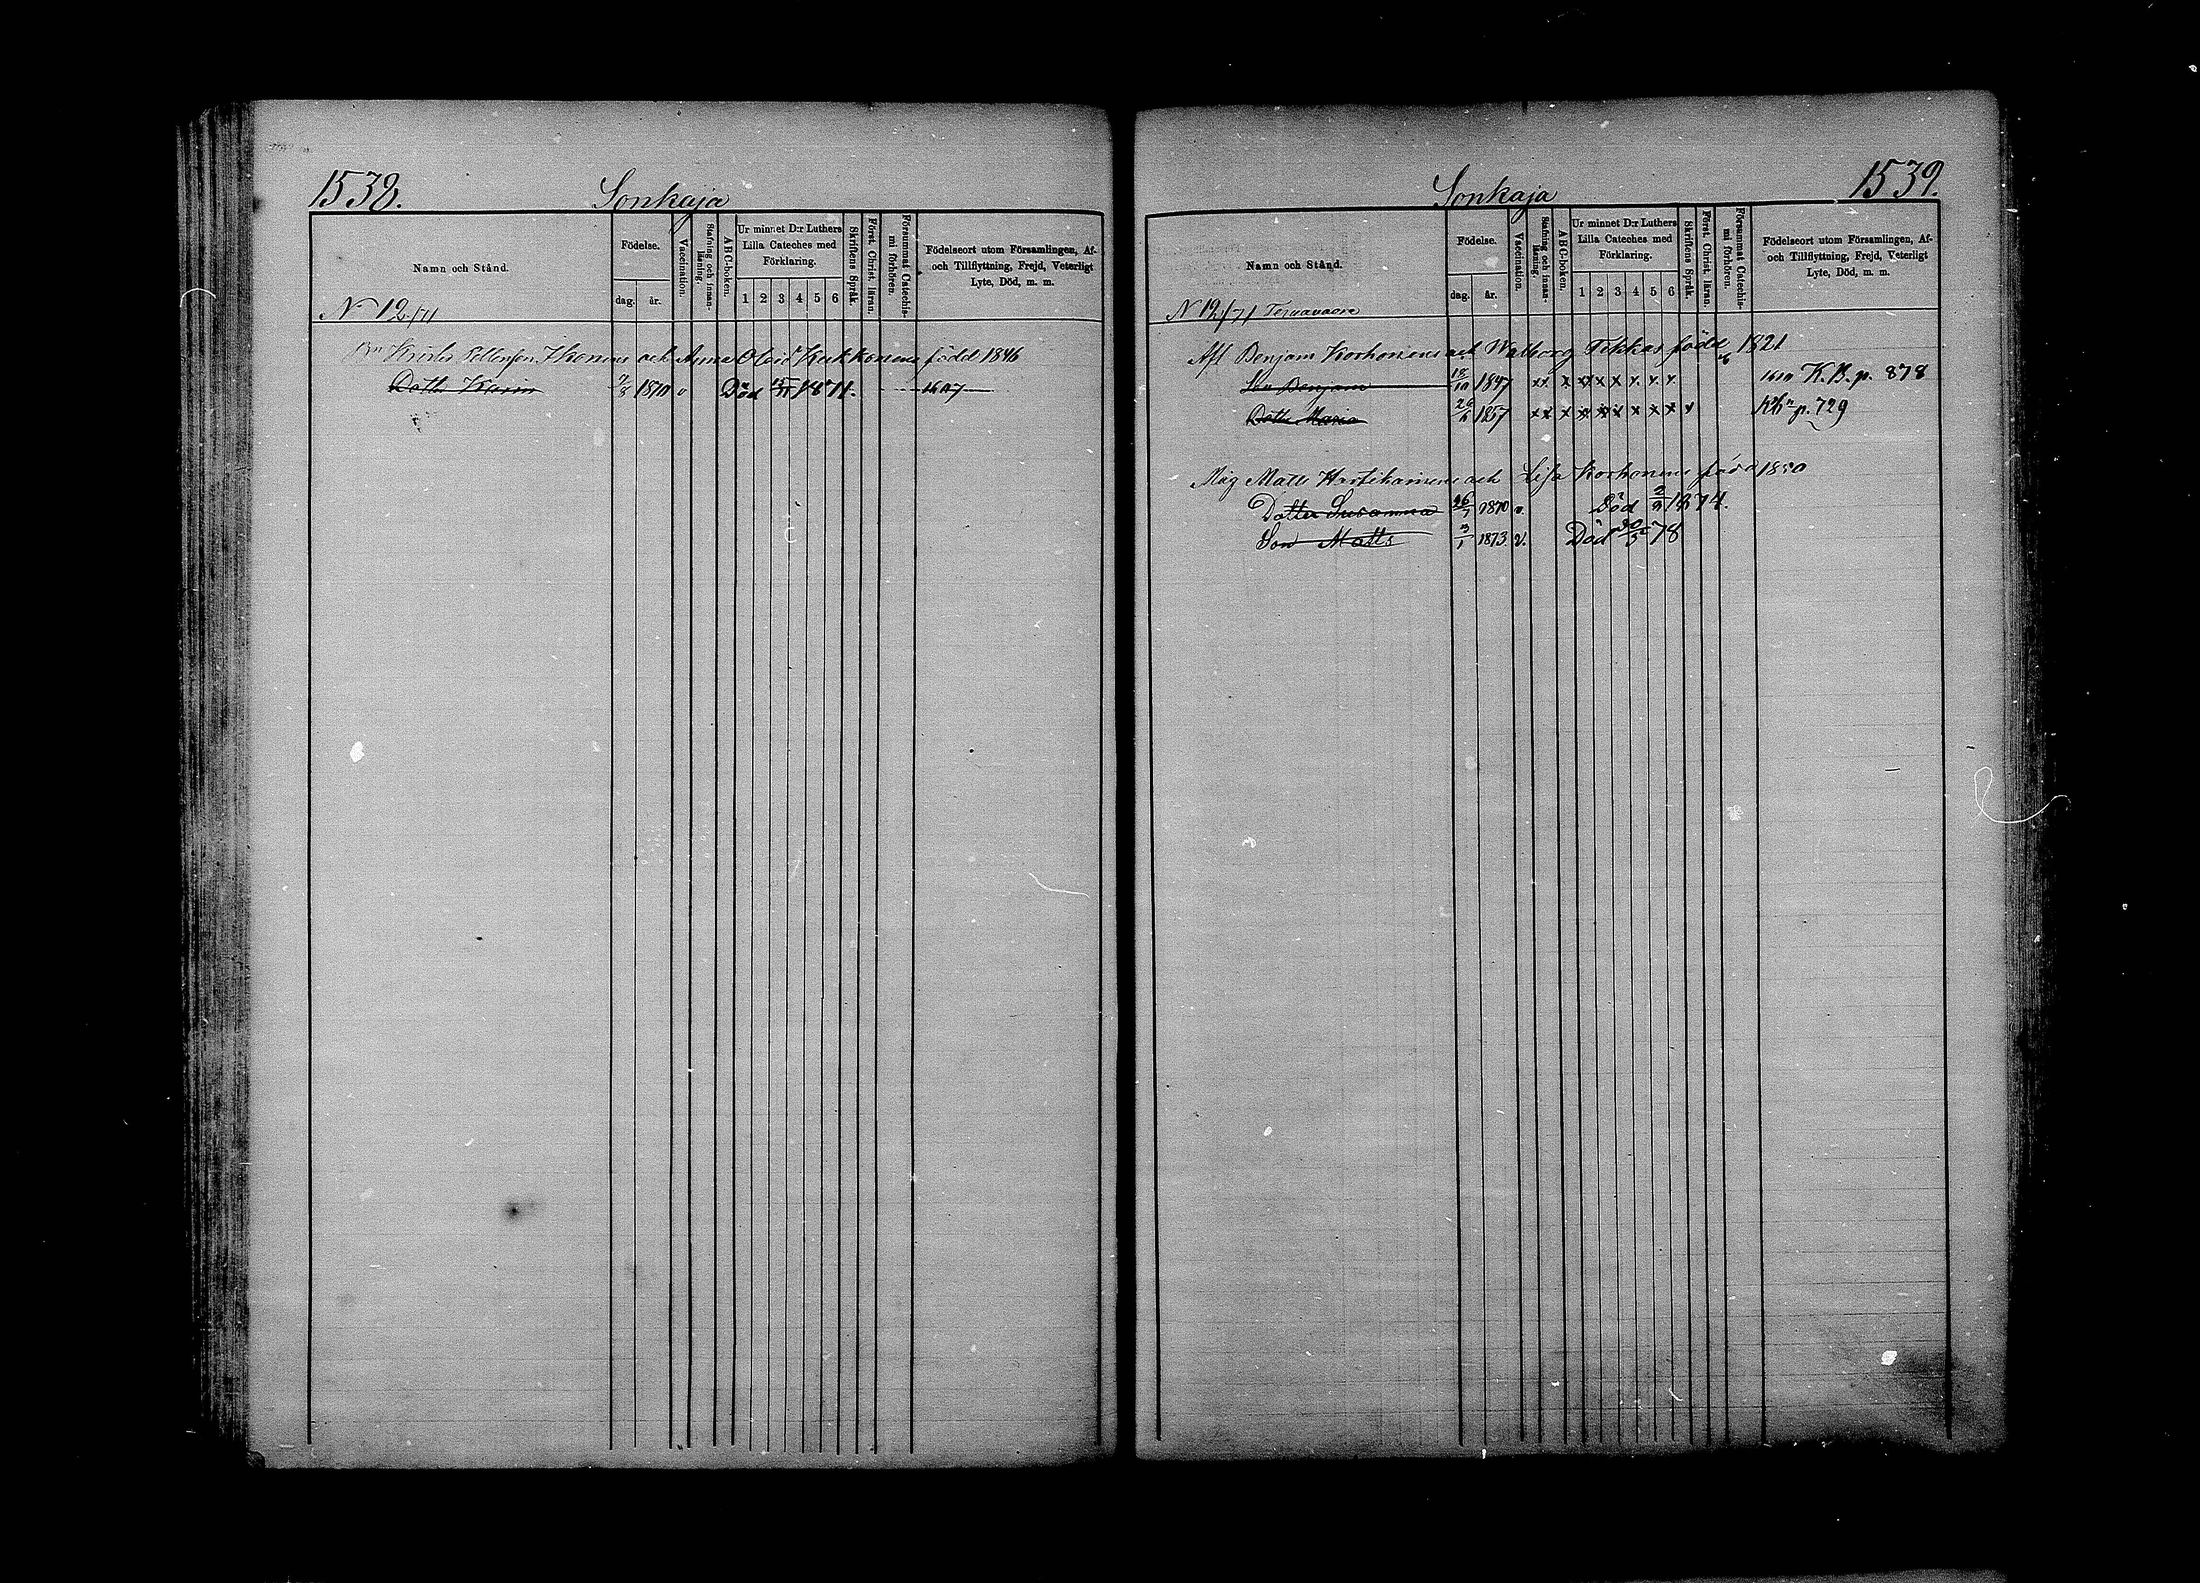 1538.
Sonkaja
Namn och Stånd.
Födelse.
dag.
år.
Vaccination.
Stafning och innan-läsning.
ABC-boken.
Ur minnet D:r Luthers
Lilla Cateches med
Förklaring.
1 2 3 4 5 6
Skriftens Språk.
Först. Christ. läran.
Försummat Catechis-mi förhören.
Födelseort utom Församlingen, Af-
och Tillflyttning, Frejd, Veterligt
Lyte, Död, m. m.
N 12/71
Bn Krister Pettersson Ikonens och Anna Olofsd Kukkonens född 1846
Dottr Karin 7/8 1870 v Död 1871. 1607
1539.
Sonkaja
Namn och Stånd.
Födelse.
dag.
år.
Vaccination.
Stafning och innan-läsning.
ABC-boken.
Ur minnet D:r Luthers
Lilla Cateches med
Förklaring.
1 2 3 4 5 6
Skriftens Språk.
Först. Christ. läran.
Försummat Catechis-mi förhören.
Födelseort utom Församlingen, Af-
och Tillflyttning, Frejd, Veterligt
Lyte, Död, m. m.
N 12/71 Tervavaara
Afl Benjam Korhonens och Walborg Tikkas född 1821
Son Benjam 18/10 1847 xx x x x x x x x 1610 K.B. p. 878
Dottr Maria 1857 xx x x x x x x x v Kbn p. 729
Måg Matts Hartikainens och Lisa Korhonens född 1850
Dotter Susanna 26/7 1870 v. Död 1874.
Son Matts 3/1 1873 v. Död 30/5 78